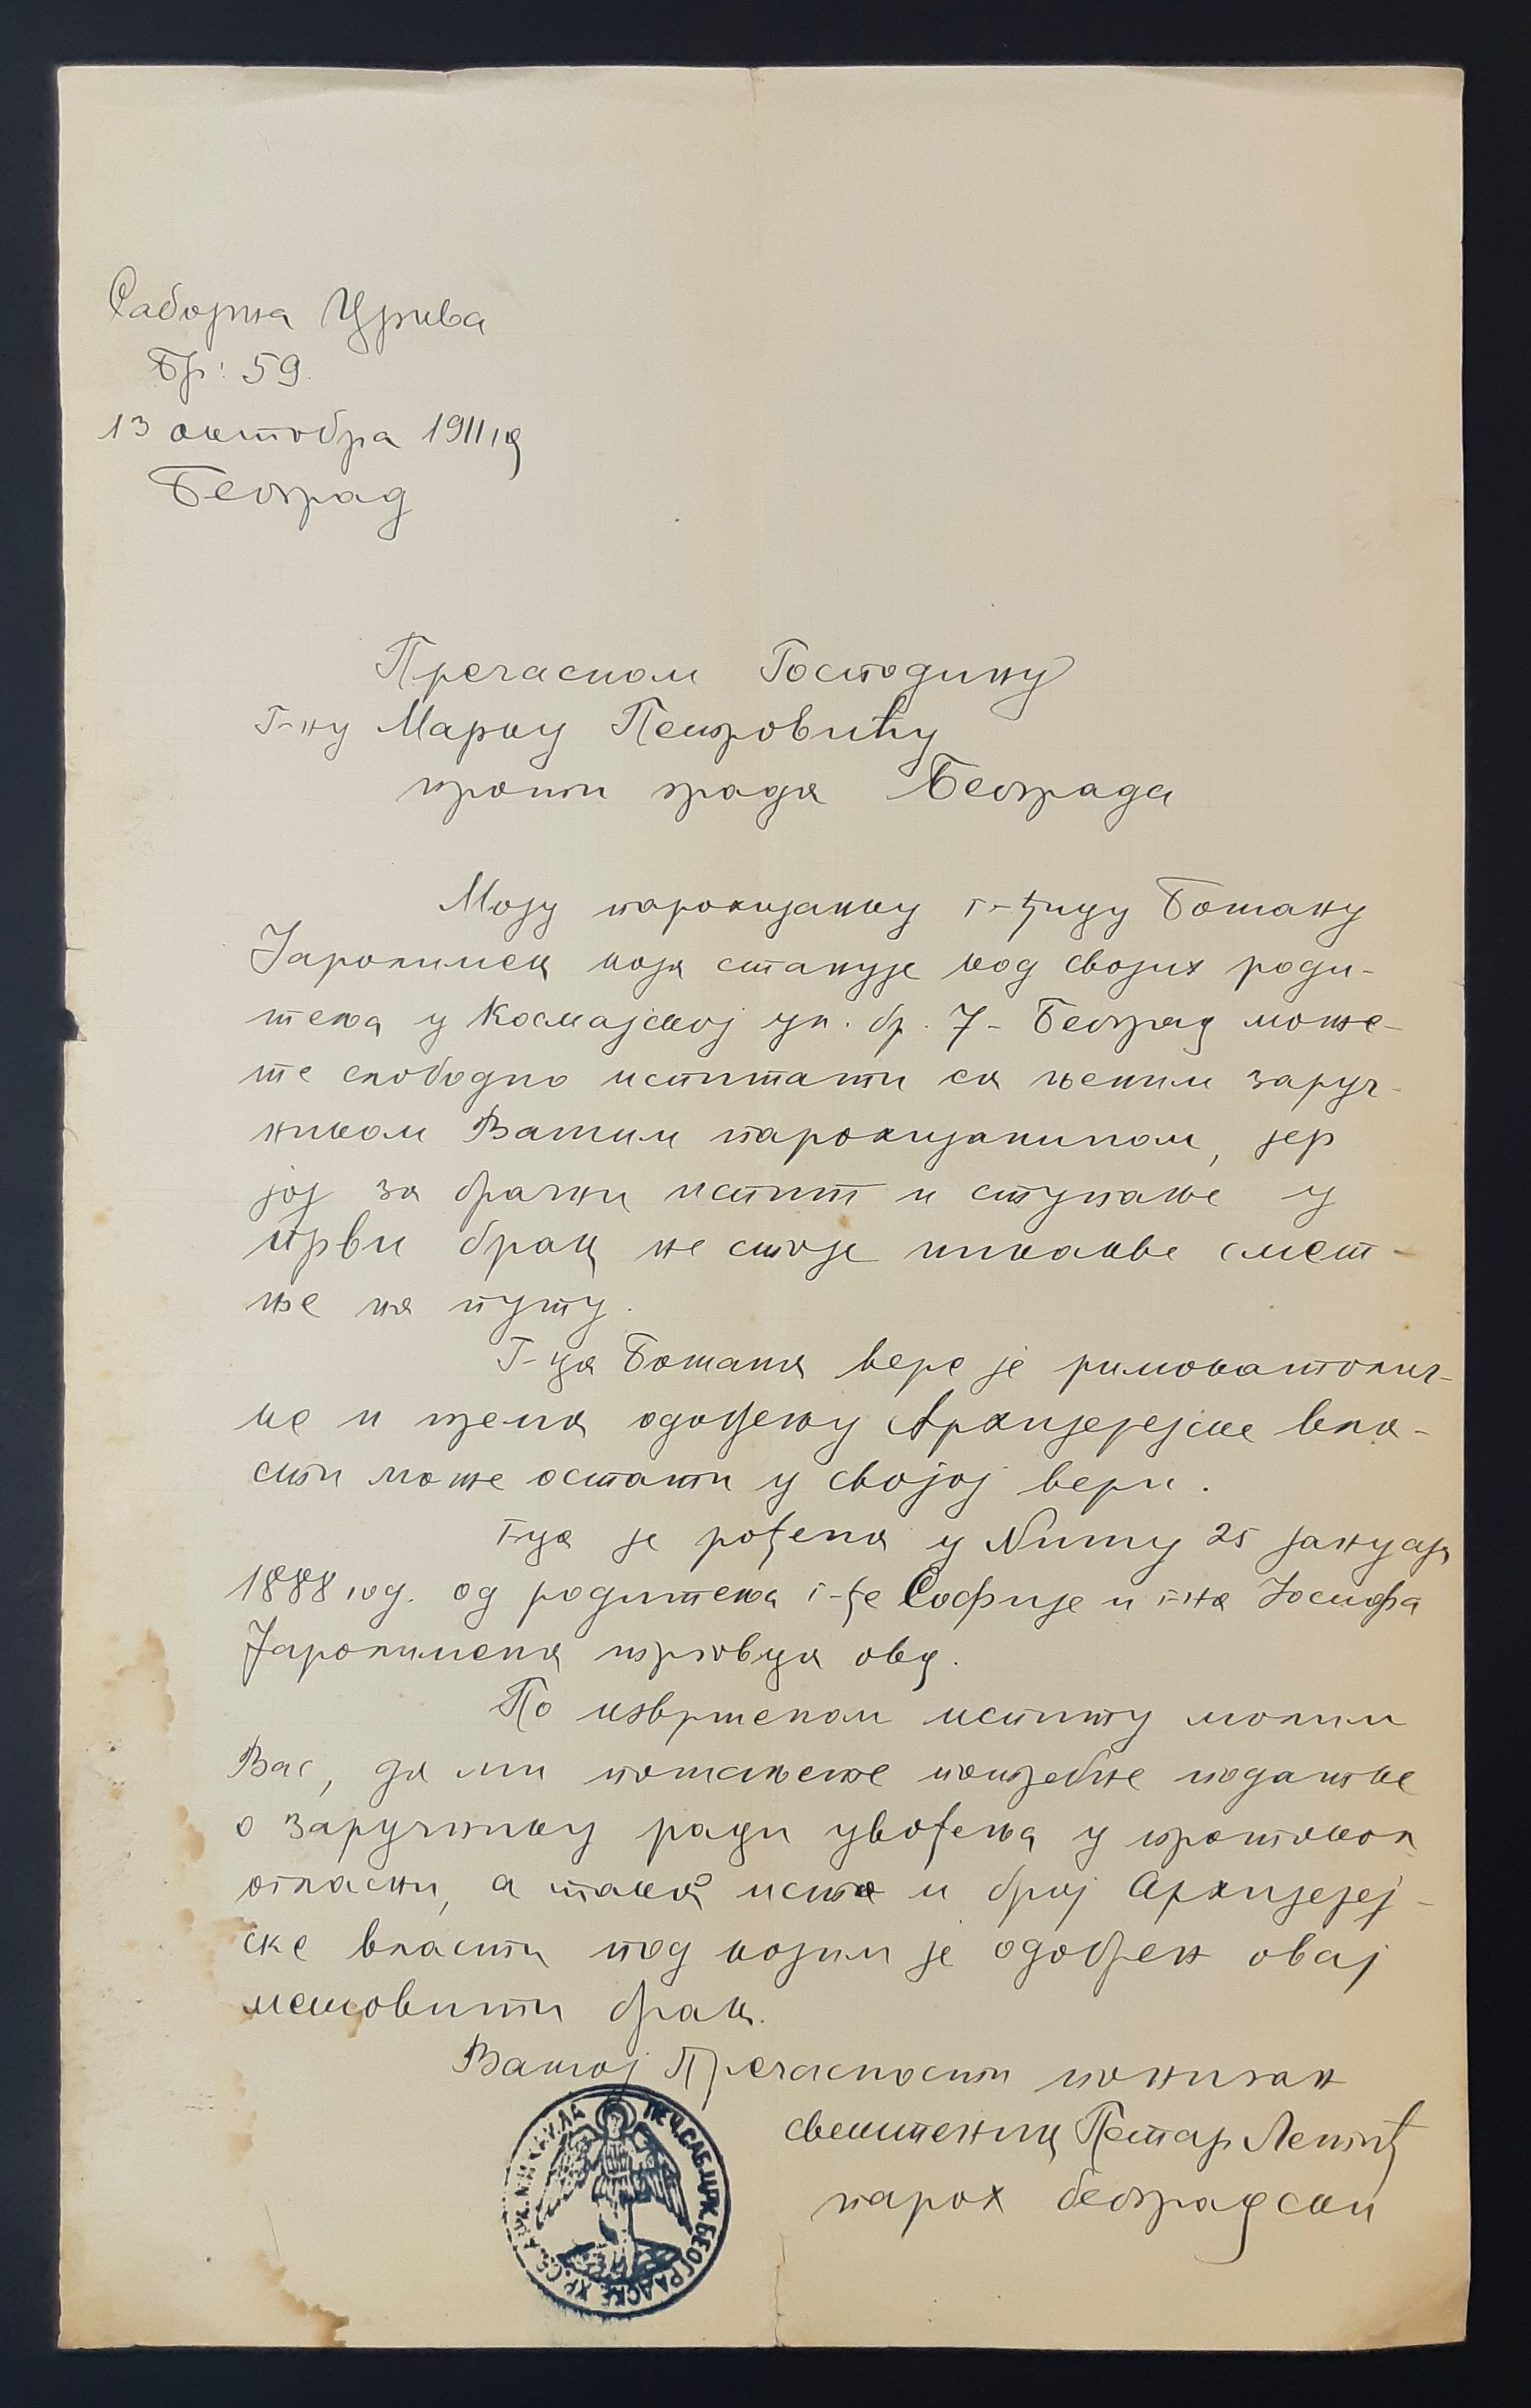 Саборна Црква
Бр: 59.
13 октобра 1911 г
Београд
Пречасном Господину
Г-ну Марку Петровићу
проти града Београда
Моју парохијанку г-ђицу Божану
која станује код својих роди-
теља у Космајској ул. бр. 7 - Београд може-
те слободно испитати са њеним заруч-
ником Вашим парохијанином, јер
јој за брачни испит и ступање у
први брак не стоје никакве смет-
ње на путу.
Г-ца Божана вере је римокатолич-
ке и према одобрењу Архијерејске вла-
сти може остати у својој вери.
Г-ца је рођена у Нишу 25 јануара
1888 год. од родитеља г-ђе Софије и г-на Јосифа
трговца овд.
По извршеном испиту молим
Вас, да ми пошаљете потребне податке
о заручнику ради увођења у протокол
огласни, а тако исто и број Архијереј-
ске власти под којим је одобрен овај
мешовити брак.
Вашој Пречасности понизан
свештеник Петар Лекић
парох београдски
ПЕЧ. САБ. ЦРК. БЕОГРАДСКЕ ХР. СВ. АРХ. МИХАИЛА